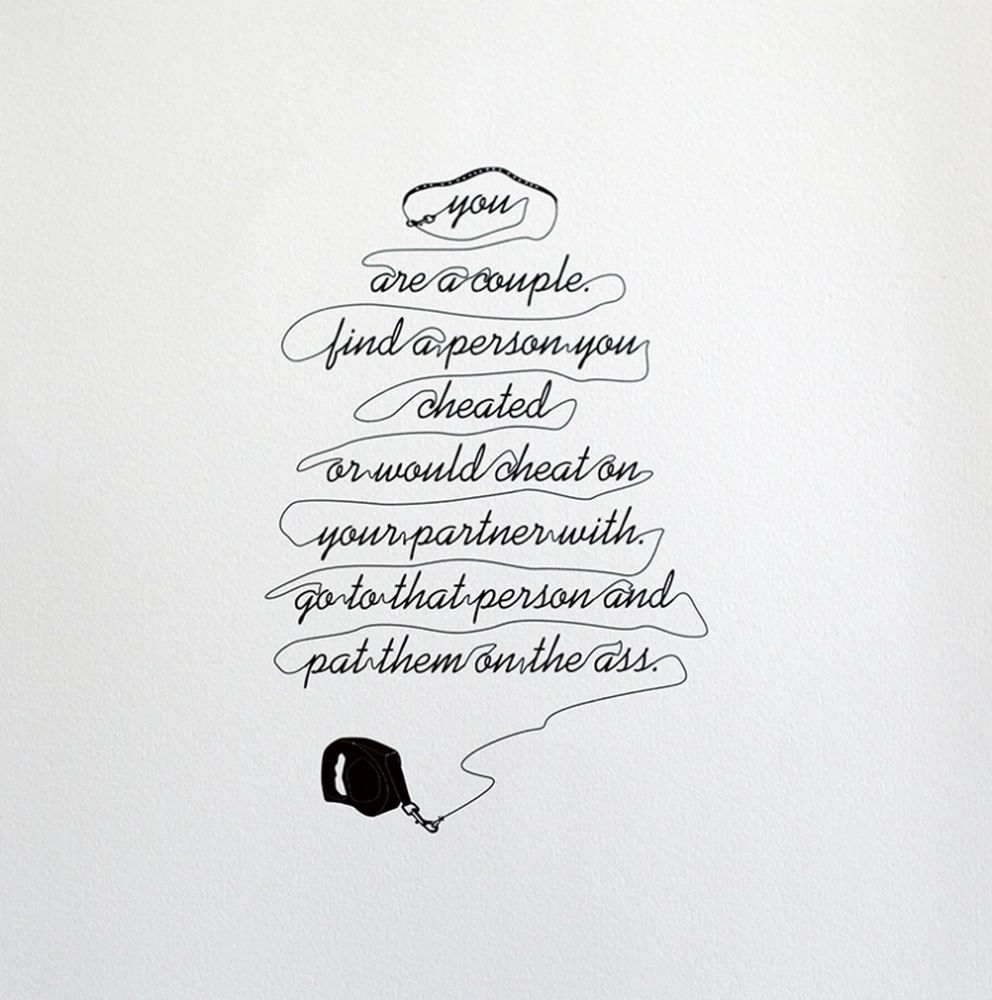 you
are a couple.
find a person you
cheated
or would cheat on
your partner with.
go to that person and
pat them on the ass.